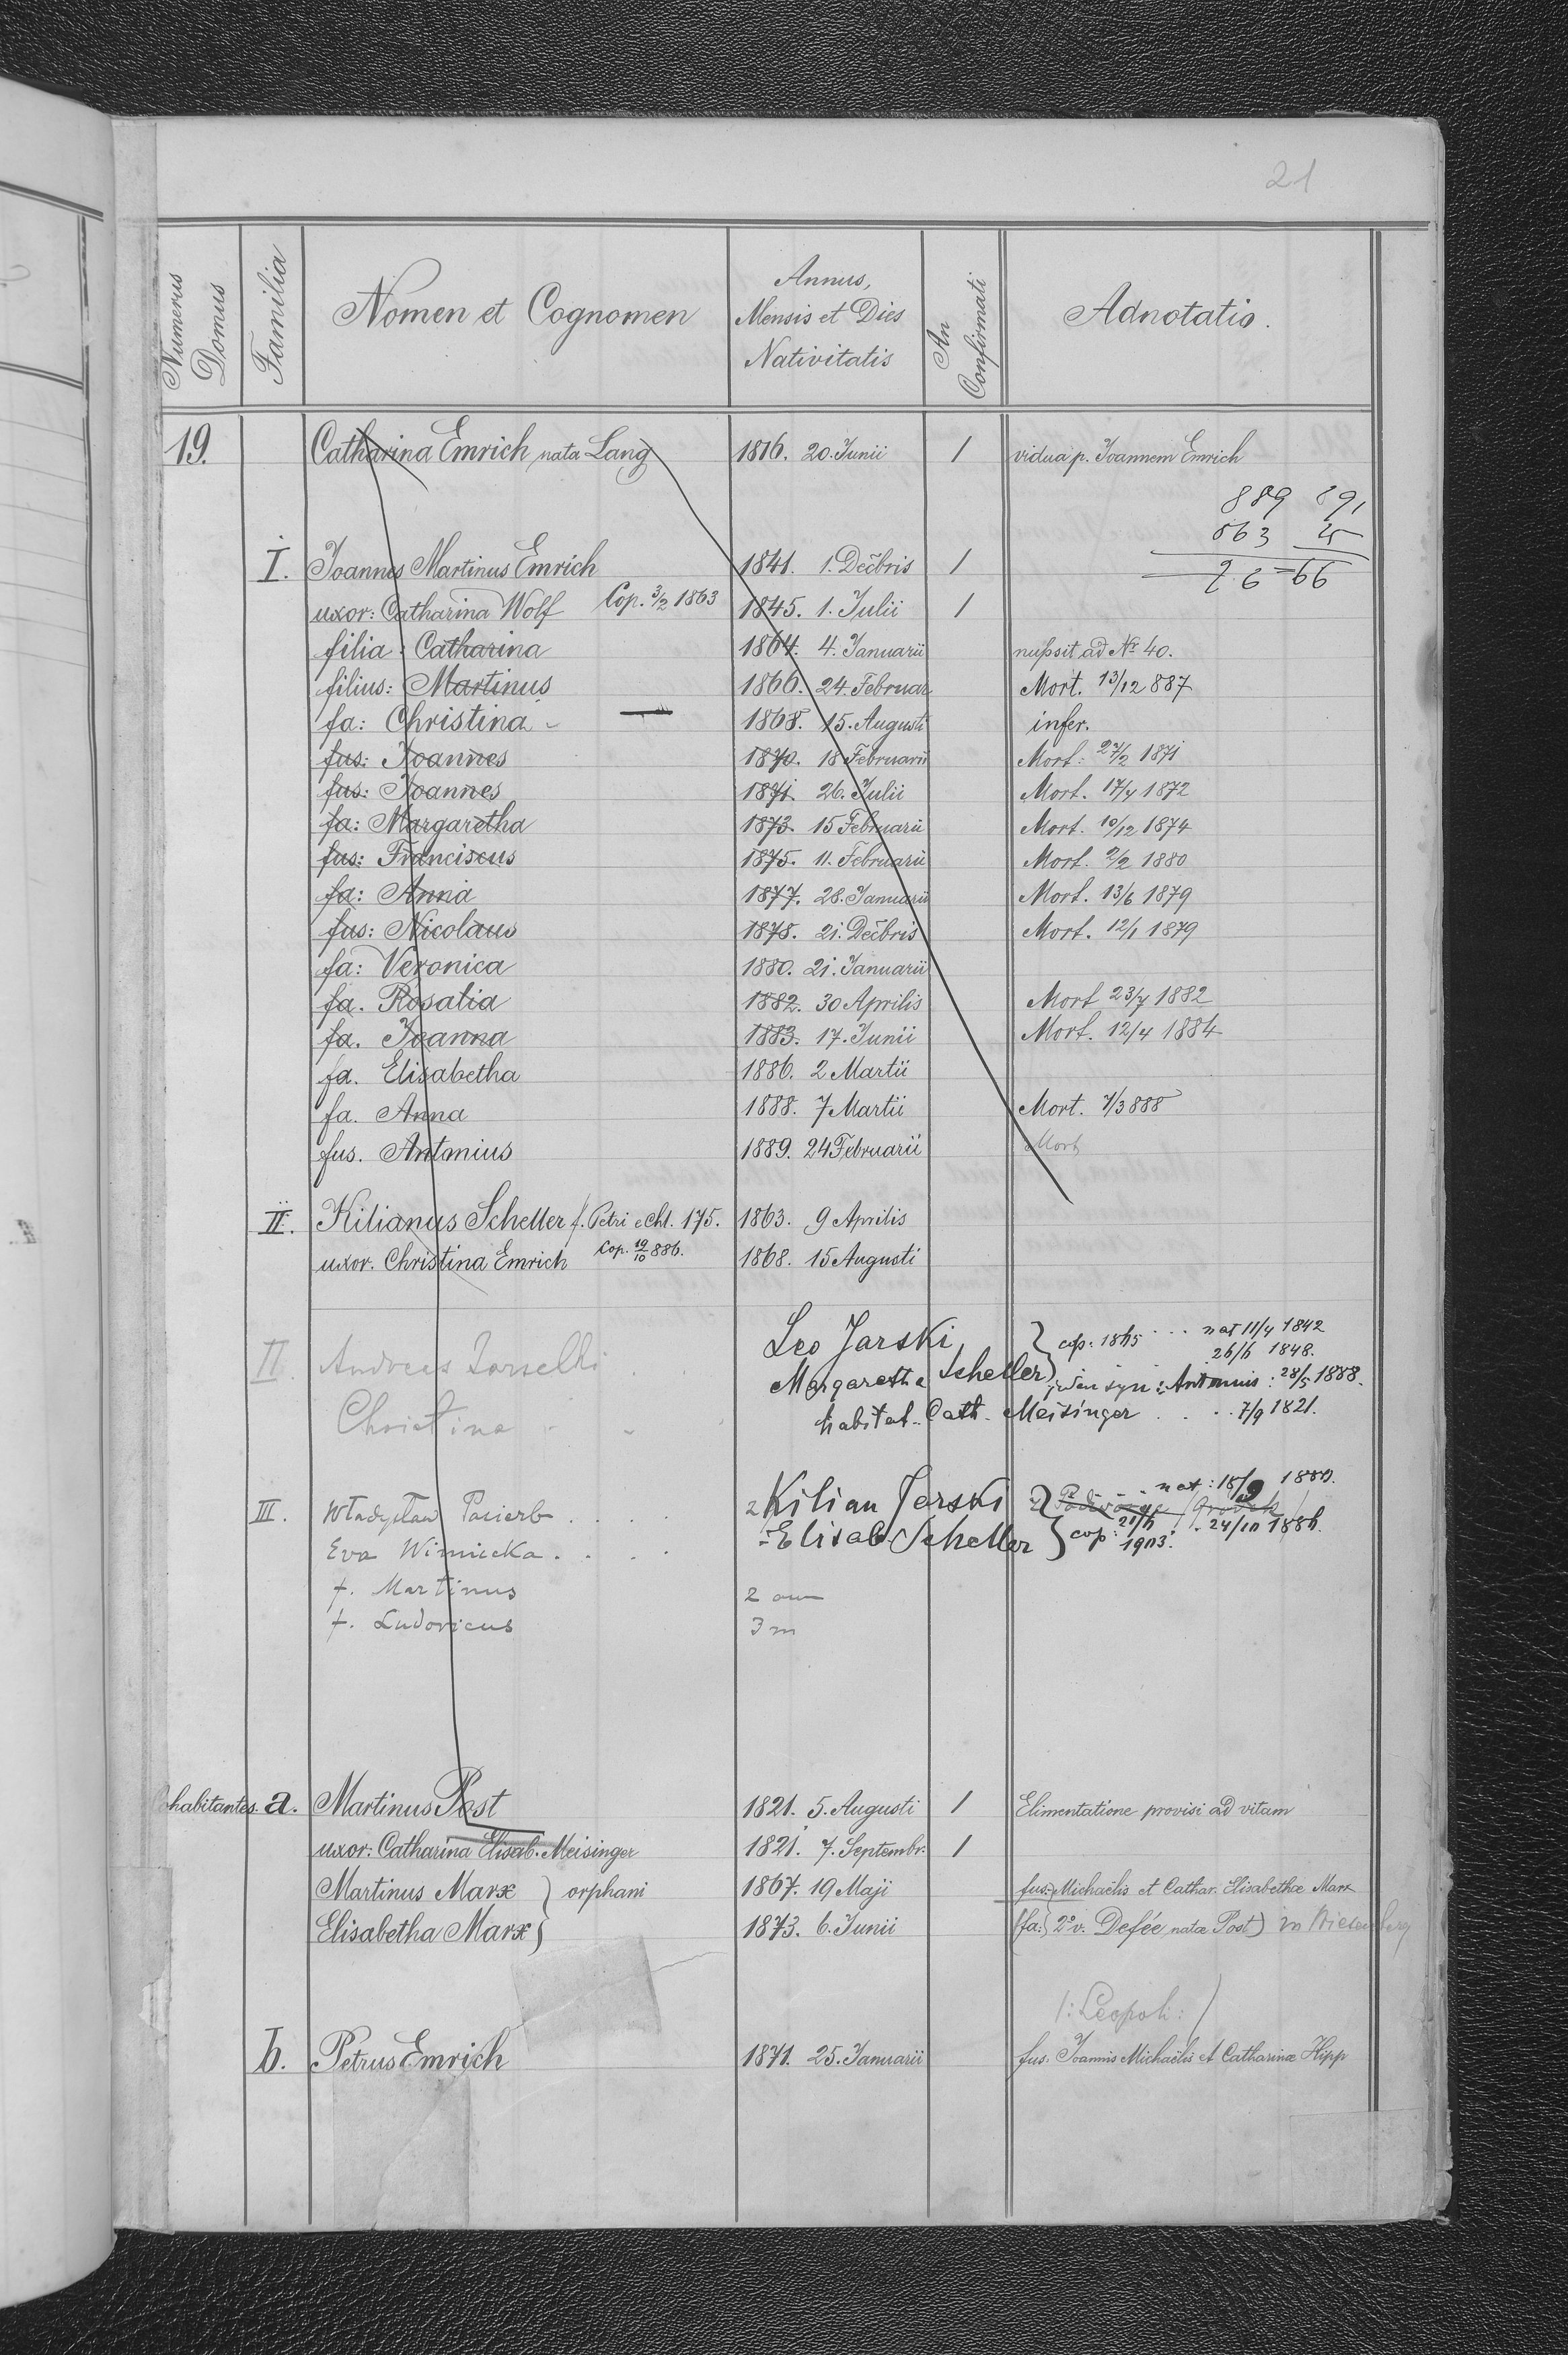 21
Numerus Domus Familia Nomen et Cognomen Annus, Mensis et Dies Nativitatis An Confirmati Adnotatio.
19. Catharina Emrich nata Lang 1816. 20. Junii 1 vidua p. Joannem Emrich
889 891
863 25
26 = 66
I. Joannes Martinus Emrich 1841. 1. Decbris 1
uxor: Catharina Wolf Cop. 3/2 1863 1845. 1. Julii 1
filia: Catharina 1864. 4. Januarii nupsit ad Nr 40.
filius: Martinus 1866. 24. Februar Mort. 13/12 887
fa: Christina 1868. 15. Augusti infer.
fus: Joannes 1870. 18 Februarii Mort: 27/2 1871
fus: Joannes 1871. 26. Julii Mort. 17/4 1872
fa: Margaretha 1873. 15 Februarii Mort. 10/12 1874
fus: Franciscus 1875. 11. Februarii Mort. 2/2 1880
fa: Anna 1877. 28. Januarii Mort. 13/6 1879
fus: Nicolaus 1878. 21. Decbris Mort. 12/1 1879
fa: Veronica 1880. 21. Januarii
fa. Rosalia 1882. 30 Aprilis Mort 23/7 1882
fa. Joanna 1883. 17. Junii Mort. 12/4 1884
fa. Elisabetha 1886. 2 Martii
fa. Anna 1888. 7 Martii Mort. 7/3 888
fus. Antonius 1889. 24 Februarii Mort
II. Kilianus Scheller f. Petri e Chl. 175. 1863. 9 Aprilis
uxor. Christina Emrich Cop. 19/10 886. 1868. 15 Augusti
Leo Jarski } cop: 1865 nat 11/4 1842
II Andreas
Margaretha Scheller 26/6 1848.
jeden syn: Antonius: 28/5 1888.
Christina habitat. Cath. Meisinger 7/9 1821.
III. Władysław Pasierb 2 Kilian Jarski nat: 18/9 1880.
Eva Winnicka Elisab Scheller } cop: 21/6 1903. 24/10 1886.
f. Martinus 2 an
f. Ludovicus 3 m
Cohabitantes. a. Martinus Post 1821. 5. Augusti 1 Elimentatione provisi ad vitam
uxor: Catharina Elisab. Meisinger 1821. 7. Septembr. 1
Martinus Marx } orphani 1867. 19 Maji fus: } Michaëlis et Cathar. Elisabethæ Marx
Elisabetha Marx } 1873. 6. Junii (fa: } 2º v. Defée natæ Post) in Wiesenberg
/: Leopoli: /
b. Petrus Emrich 1871. 25. Januarii fus: Joannis Michaëlis et Catharinæ Hipp